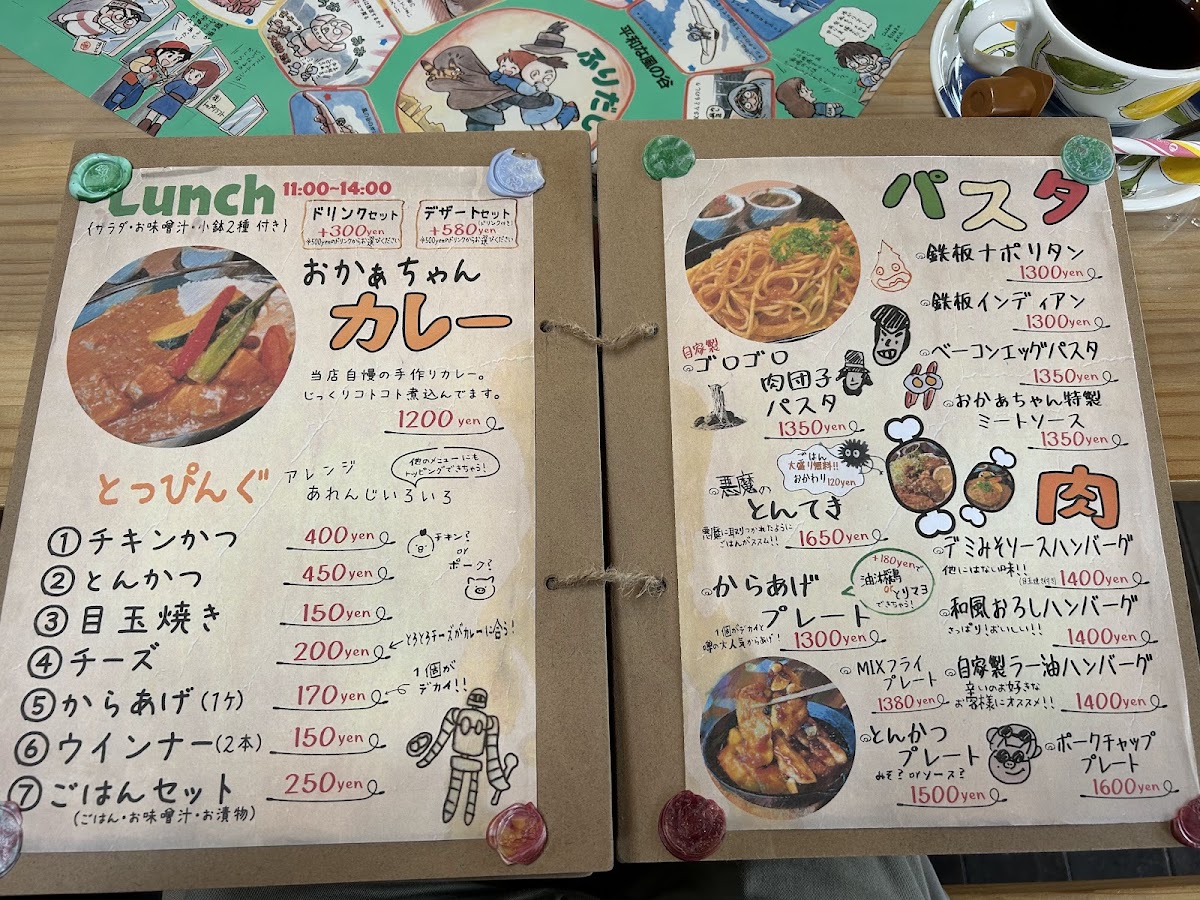 平和な風の谷
ふりだし
Lunch 11:00~14:00
{サラダ・お味噌汁・小鉢2種 付き}
ドリンクセット
+300yen
¥500yenのドリンクからお選びください
デザートセット
(ドリンク付き)
+580yen
¥500yenのドリンクからお選びください
おかぁちゃん
カレー
当店自慢の手作りカレー。
じっくりコトコト煮込んでます。
1200yen
とっぴんぐ
アレンジ
あれんじいろいろ
他のメニューにも
トッピングできちゃう!
①チキンかつ 400yen
チキン?
or
ポーク?
②とんかつ 450yen
③目玉焼き 150yen
④チーズ 200yen
とろとろチーズがカレーに合う!
⑤からあげ(1ケ) 170yen
1個が
デカイ!!
⑥ウインナー(2本) 150yen
⑦ごはんセット 250yen
(ごはん・お味噌汁・お漬物)
パスタ
鉄板ナポリタン
1300yen
鉄板インディアン
1300yen
ベーコンエッグパスタ
1350yen
おかぁちゃん特製
ミートソース
1350yen
自家製
ゴロゴロ
肉団子
パスタ
1350yen
ごはん
大盛り無料!!
おかわり120yen
肉
悪魔の
とんてき
悪魔に取りつかれたように
ごはんがススム!!
1650yen
からあげ
プレート
1個がデカイと
噂の大人気からあげ!
1300yen
+180yenで
油淋鶏
orとりマヨ
できちゃう!
デミみそソースハンバーグ
他にはない味!!
(目玉焼き付き)
1400yen
和風おろしハンバーグ
さっぱり!おいしい!!
1400yen
自家製ラー油ハンバーグ
辛いのお好きな
お客様にオススメ!!
1400yen
MIXフライ
プレート
1380yen
とんかつ
プレート
みそ?orソース?
1500yen
ポークチャップ
プレート
1600yen